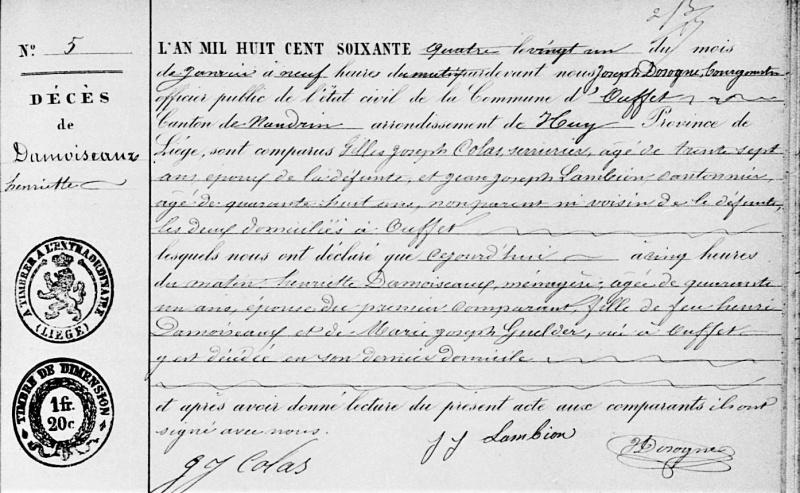 2/3
N.o 5
DÉCÈS
de
Damoiseaux
henriette
A TIMBRER A L'EXTRAORDINAIRE
(LIÉGE)
TIMBRE DE DIMENSION
1 fr.
20 c
L'AN MIL HUIT CENT SOIXANTE quatre le vingt un du mois
de janvier à neuf heures du matin pardevant nous Joseph Dorogne, Bourgmestre
officier public de l'état civil de la Commune d'Ouffet
Canton de Nandrin arrondissement de Huy Province de
Liége, sont comparus Gilles Joseph Colas, serrurier, agé de trente sept
ans époux de la défunte, et jean joseph Lambion, cantonnier,
agé de quarante huit ans, non parent ni voisin de la défunte,
les deux domiciliés à Ouffet
lesquels nous ont déclaré que cejourd'hui à cinq heures
du matin henriette Damoiseaux, ménagère, agée de quarante
un ans, épouse du premier comparant, fille de feu henri
Damoiseaux et de Marie joseph Guelder, née à Ouffet
y est décédée en son dernier domicile
et après avoir donné lecture du présent acte aux comparants ils ont
signé avec nous.
g J Colas
J J Lambion
Dorogne